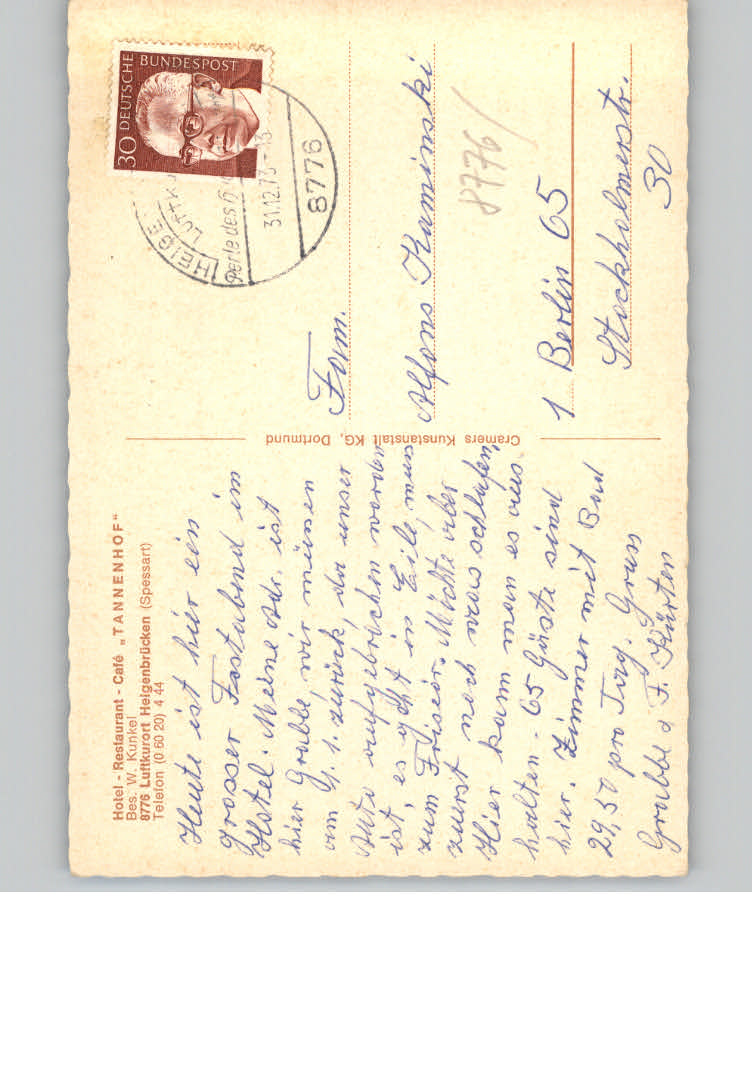 Hotel - Restaurant - Café „TANNENHOF“
Bes. W. Kunkel
8776 Luftkurort Heigenbrücken (Spessart)
Telefon (0 60 20) 4 44
Heute ist hier ein
grosser Festabend im
Hotel. Meine Adr. ist
hier Grabbe, wir müssen
am 9. 1. zurück, da unser
Auto aufgebrochen worden
ist, es geht in Eile, muss
zum Friseör. Möchte aber
zuerst noch was schlafen,
Hier kann man es aus
halten. 65 Gäste sind
hier. Zimmer mit Bad
29,50 pro Tag. Gruss
Grabbe F. Kürten
Cramers Kunstanstalt KG, Dortmund
DEUTSCHE BUNDESPOST
30
HEIGE
LUFTKU
Perle des
31.12.73-13
8776
Fam.
Alfons Kaminski
8776/
1 Berlin 65
Stockholmerstr.
30